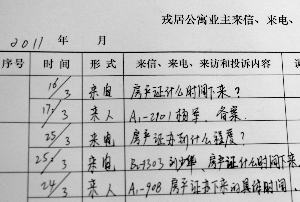 戎居公寓业主来信、来电、
2011 年 月
序号 时间 形式 来信、来电、来访和投诉内容
16/3 来电 房产证什么时间下来?
17/3 来人 A1-2901 杨军 备案.
25/3 来电 房产证办到什么程度?
25/3 来电 B-1303 房产证什么时间下来
24/3 来人 A1-908 房产证办下来的具体时间